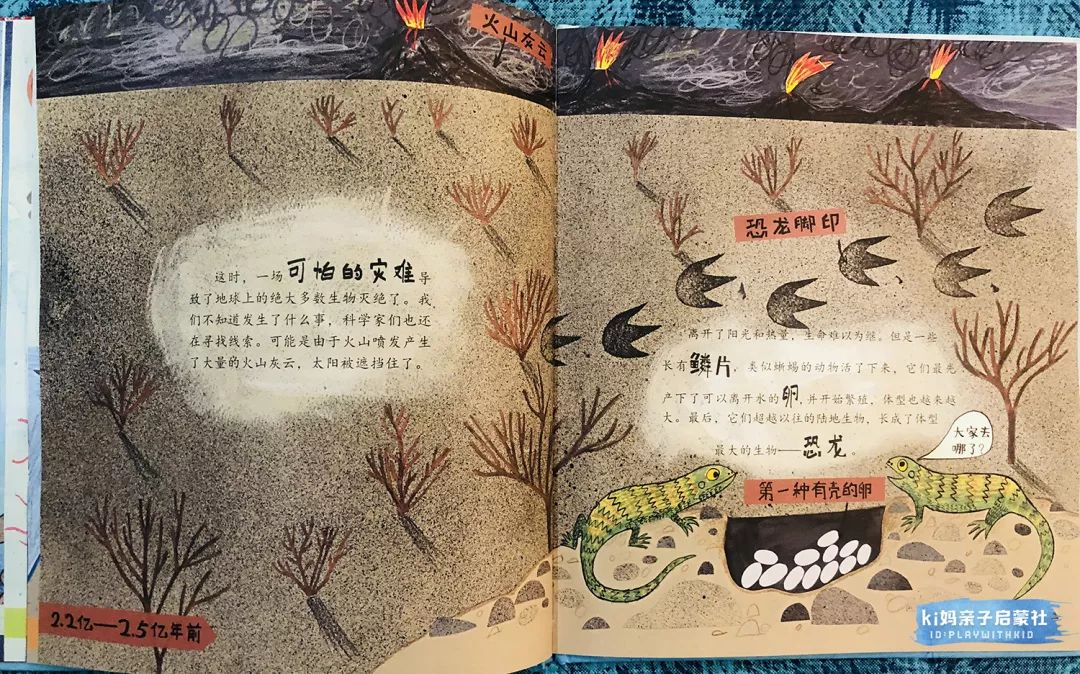 火山灰云
这时，一场可怕的灾难导
致了地球上的绝大多数生物灭绝了。我
们不知道发生了什么事，科学家们也还
在寻找线索。可能是由于火山喷发产生
了大量的火山灰云，太阳被遮挡住了。
2.2亿——2.5亿年前
恐龙脚印
离开了阳光和热量，生命难以为继。但是一些
长有鳞片，类似蜥蜴的动物活了下来，它们最先
产下了可以离开水的卵，并开始繁殖，体型也越来越
大。最后，它们超越以往的陆地生物，长成了体型
最大的生物——恐龙。
大家去
哪了？
第一种有壳的卵
ki妈亲子启蒙社
ID:PLAYWITHKID